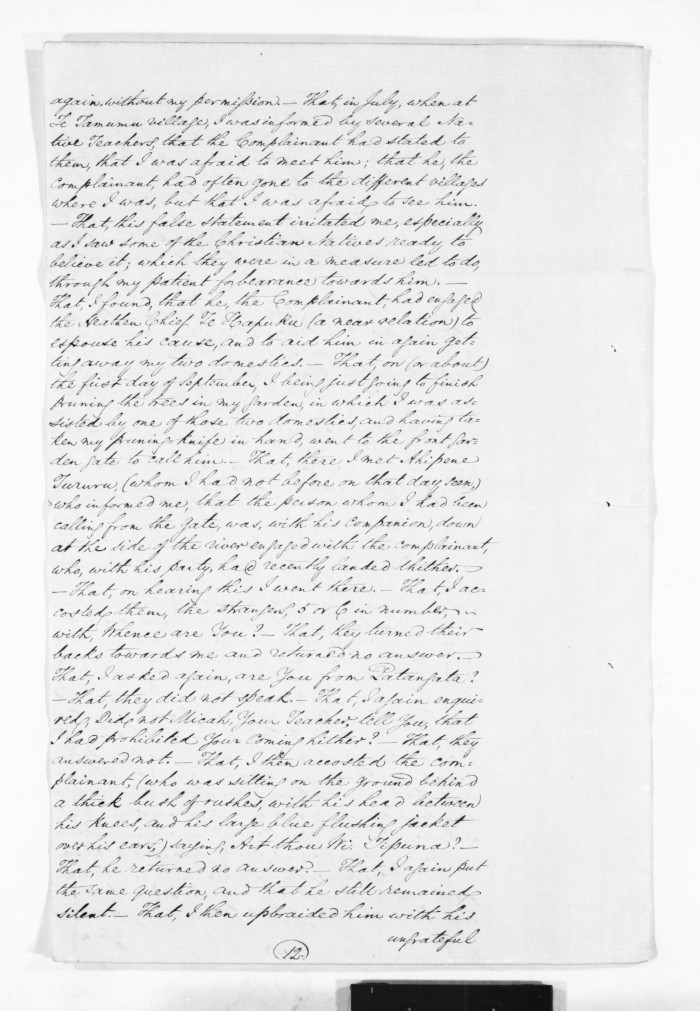 again, without my permission. — That, in July, when at
Te Tamumu village, I was informed by several Na-
tive Teachers, that the Complainant had stated to
them, that I was afraid to meet him; that he, the
Complainant, had often gone to the different villages
where I was, but that I was afraid to see him.
— That, this false statement irritated me, especially
as I saw some of the Christian Natives ready to
believe it; which they were in a measure led to do,
through my patient forbearance towards him. —
That, I found, that he, the Complainant, had engaged
the Heathen Chief Te Hapuku (a near relation) to
espouse his cause, and to aid him in again get-
ting away my two domestics. — That, on (or about)
the first day of September, I being just going to finish
pruning the trees in my garden, in which I was as-
sisted by one of those two domestics, and having ta-
ken my pruning-knife in hand, went to the front gar-
den gate to call him. — That, there I met Ahipene
Tururu, (whom I had not before on that day seen,)
who informed me, that the person whom I had been
calling from the gate, was, with his companion, down
at the side of the river engaged with the complainant,
who, with his party, had recently landed thither. —
— That, on hearing this I went there. — That, I ac-
costed them, the strangers, 5 or 6 in number, —
with, Whence are You? — That, they turned their
backs towards me and returned no answer. —
That, I asked again, are You from Patangata?
— That, they did not speak. — That, I again enqui-
red, Did not Micah, Your Teacher, tell You, that
I had prohibited Your coming hither? — That, they
answered not. — That, I then accosted the com-
plainant, (who was sitting on the ground behind
a thick bush of rushes, with his head between
his knees, and his large blue flushing jacket
over his ears,) saying, Art thou Wi. Tipuna? —
That, he returned no answer. — That, I again put
the same question, and that he still remained
silent. — That, I then upbraided him with his
ungrateful
12.